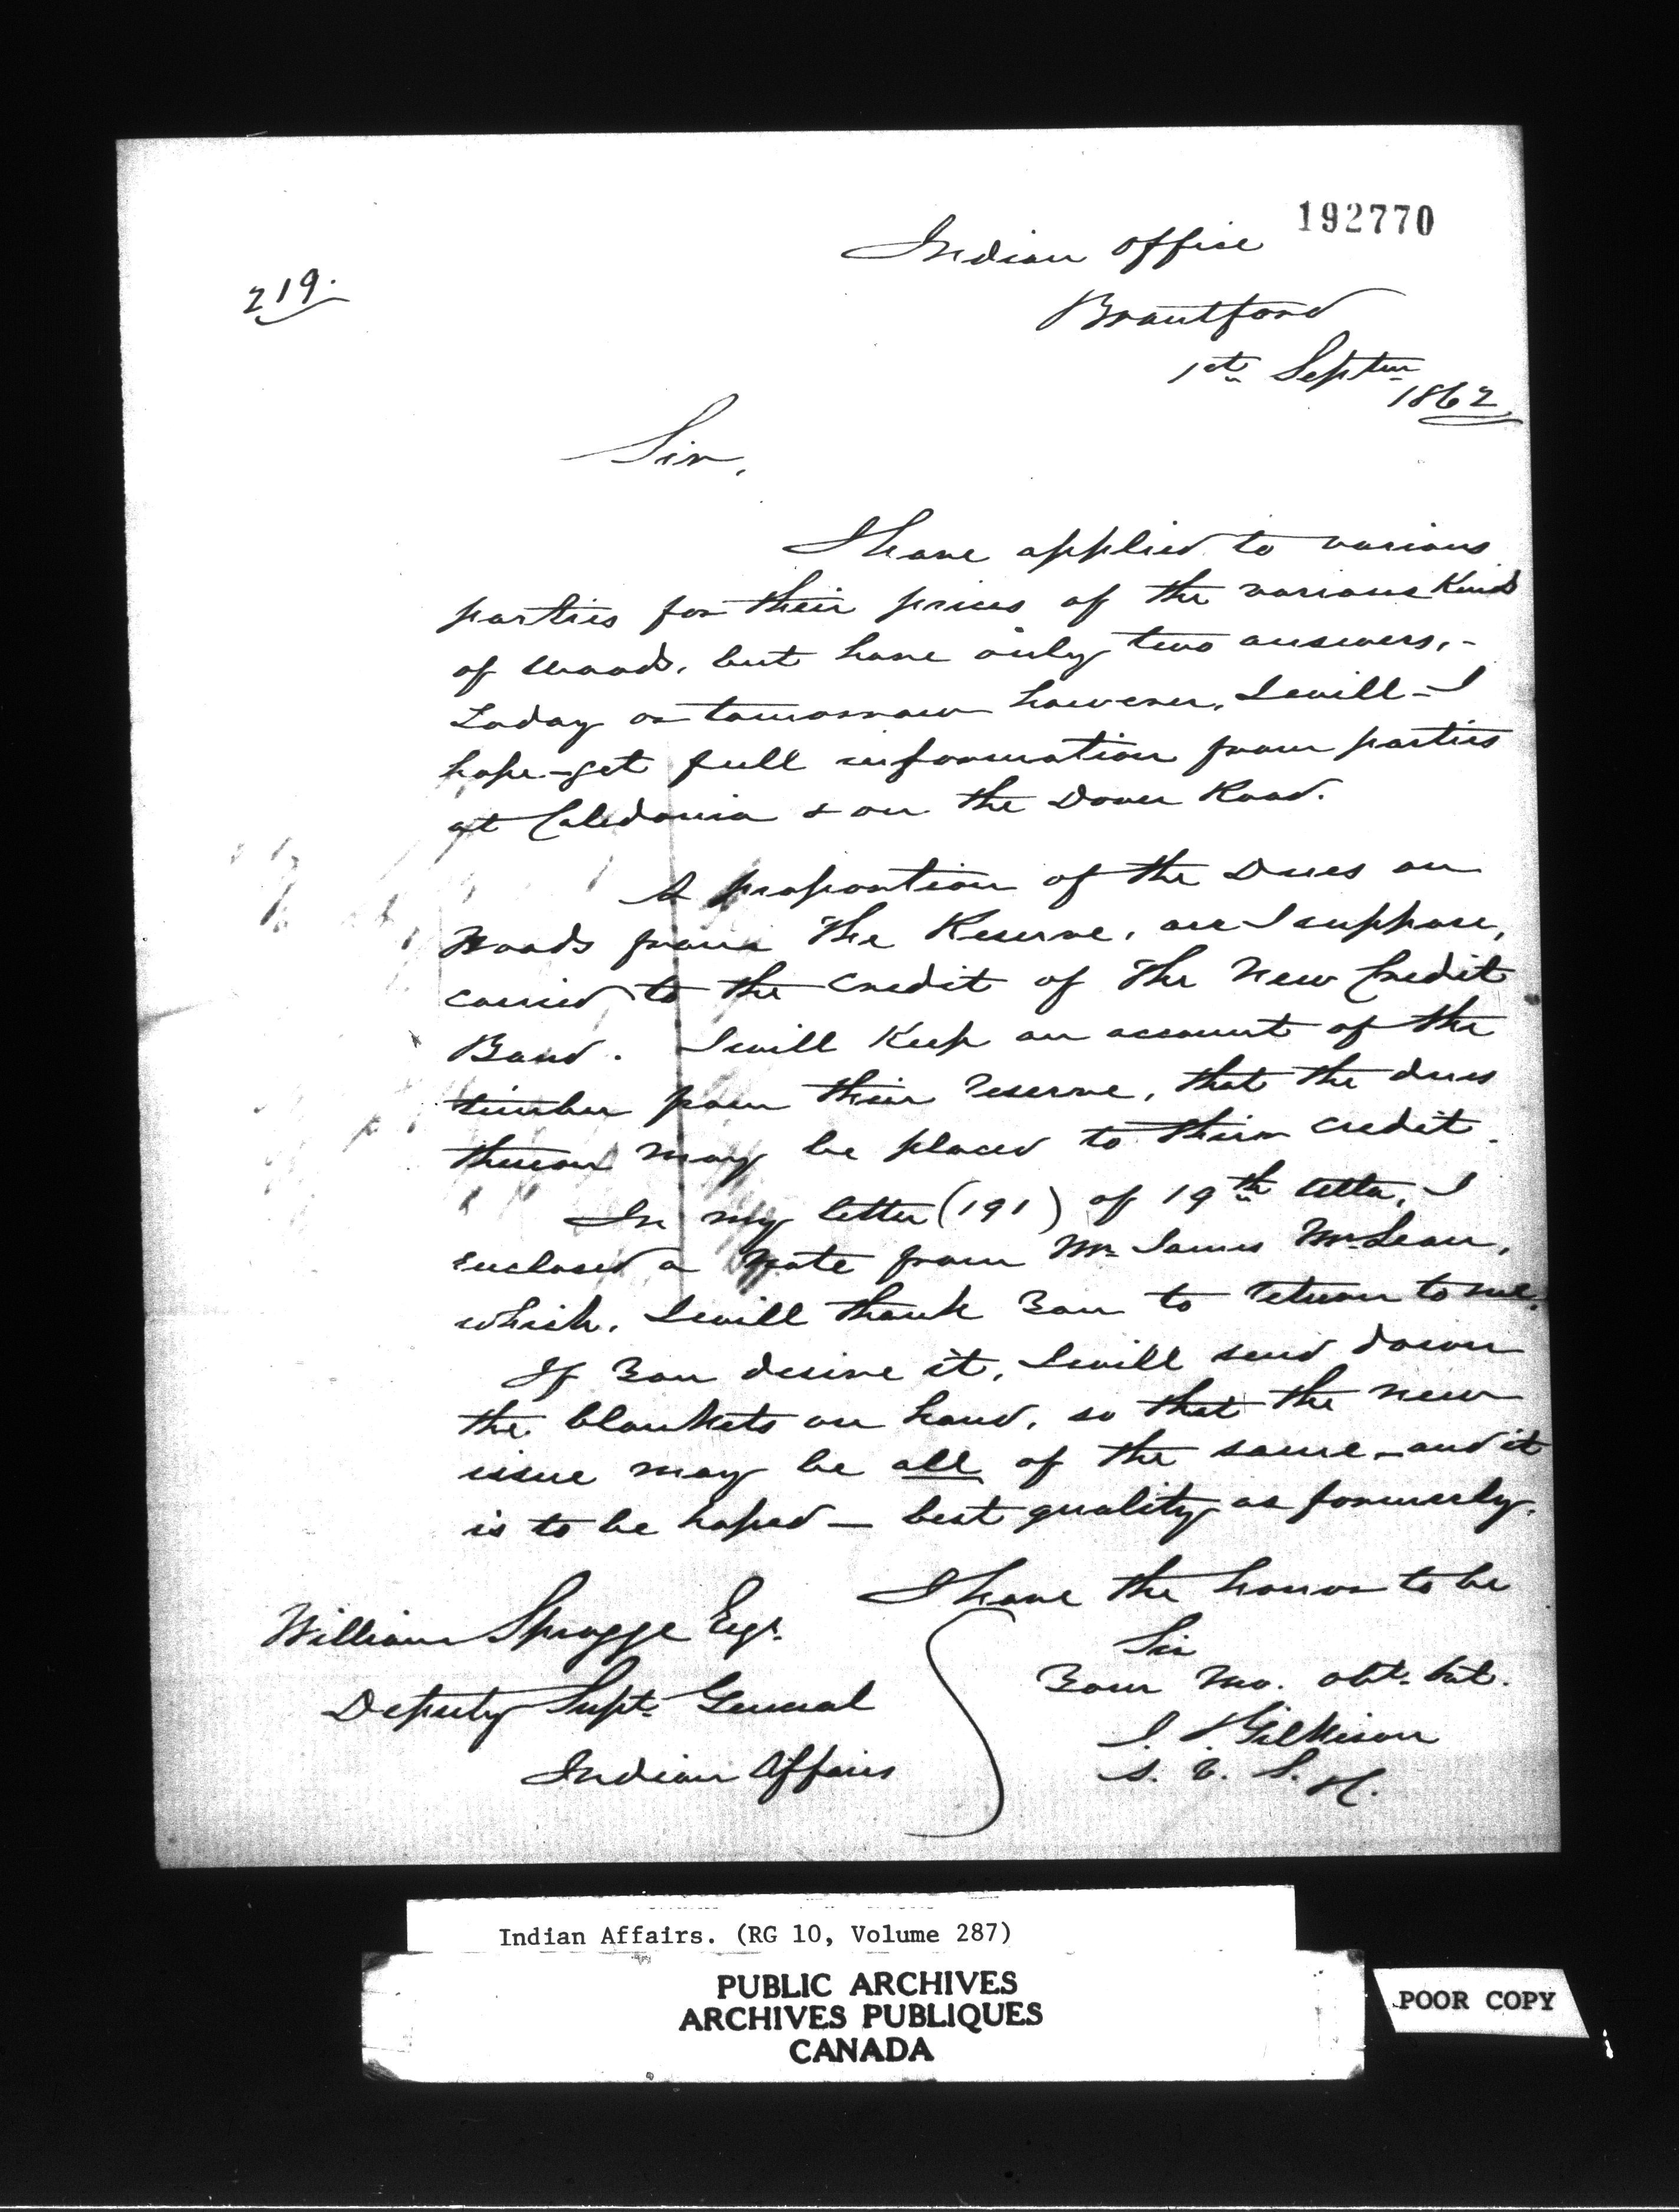 192770
219.
Indian Office
Brantford
1st Septer
1862
Sir,
I have applied to various
parties for their prices of the various Kinds
of woods, but have only two answers,-
Today or tomorrow however, I will - I
hope - get full information from parties
at Caledonia & on the Dover Road.
A proportion of the Dues on
Woods from The Reserve, are I suppose,
carried to the credit of The New Credit
Band. I will Keep an account of the
timber from their reserve, that the dues
thereon may be placed to their credit.
In my letter (191) of 19th ulto, I
enclosed a note from Mr James McLean,
which, I will thank You to return to me.
If You desire it, I will send down
the blankets on hand, so that the new
issue may be all of the same - and it
is to be hoped - best quality as formerly.
I have the honor to be
Sir
Your Mo. obt. Svt.
J. T. Gilkison
William Spragge Esqr.
Deputy Supt. General
Indian Affairs
Indian Affairs. (RG 10, Volume 287)
PUBLIC ARCHIVES
ARCHIVES PUBLIQUES
CANADA
POOR COPY